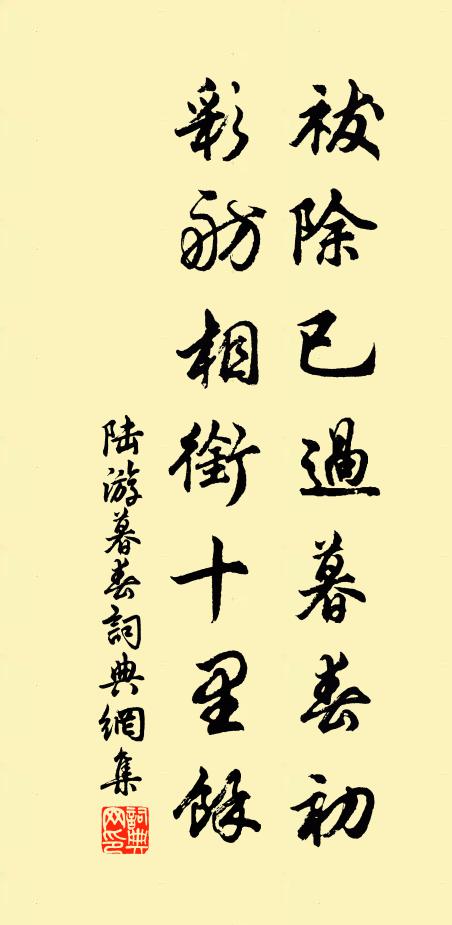 祓除已過暮春初
彩舫相銜十里餘
陆游暮春詞典網集
詞典網印